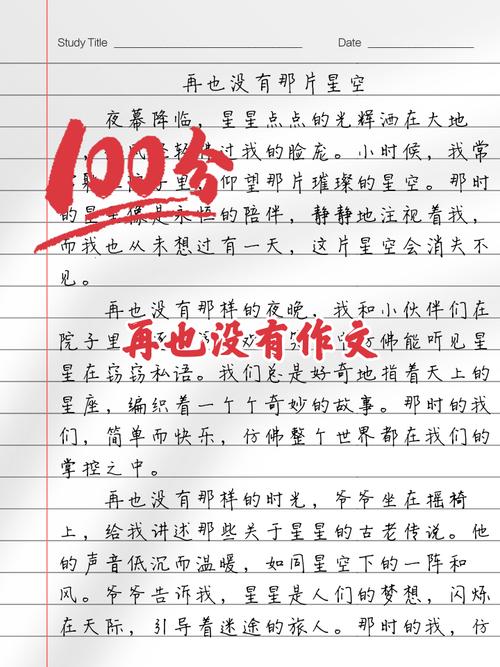 Study Title Date
再也没有那片星空
夜幕降临，星星点点的光辉洒在大地
100分
过我的脸庞。小时候，我常
院子里，仰望那片璀璨的星空。那时
的星星像是永恒的陪伴，静静地注视着我，
而我也从未想过有一天，这片星空会消失不
见。
再也没有那样的夜晚，我和小伙伴们在
院子里
仿佛能听见星
再也没有作文
星在窃窃私语。我们总是好奇地指着天上的
星座，编织着一个个奇妙的故事。那时的我
们，简单而快乐，仿佛整个世界都在我们的
掌控之中。
再也没有那样的时光，爷爷坐在摇椅
上，给我讲述那些关于星星的古老传说。他
的声音低沉而温暖，如同星空下的一阵和
风。爷爷告诉我，星星是人们的梦想，闪烁
在天际，引导着迷途的旅人。那时的我，仿